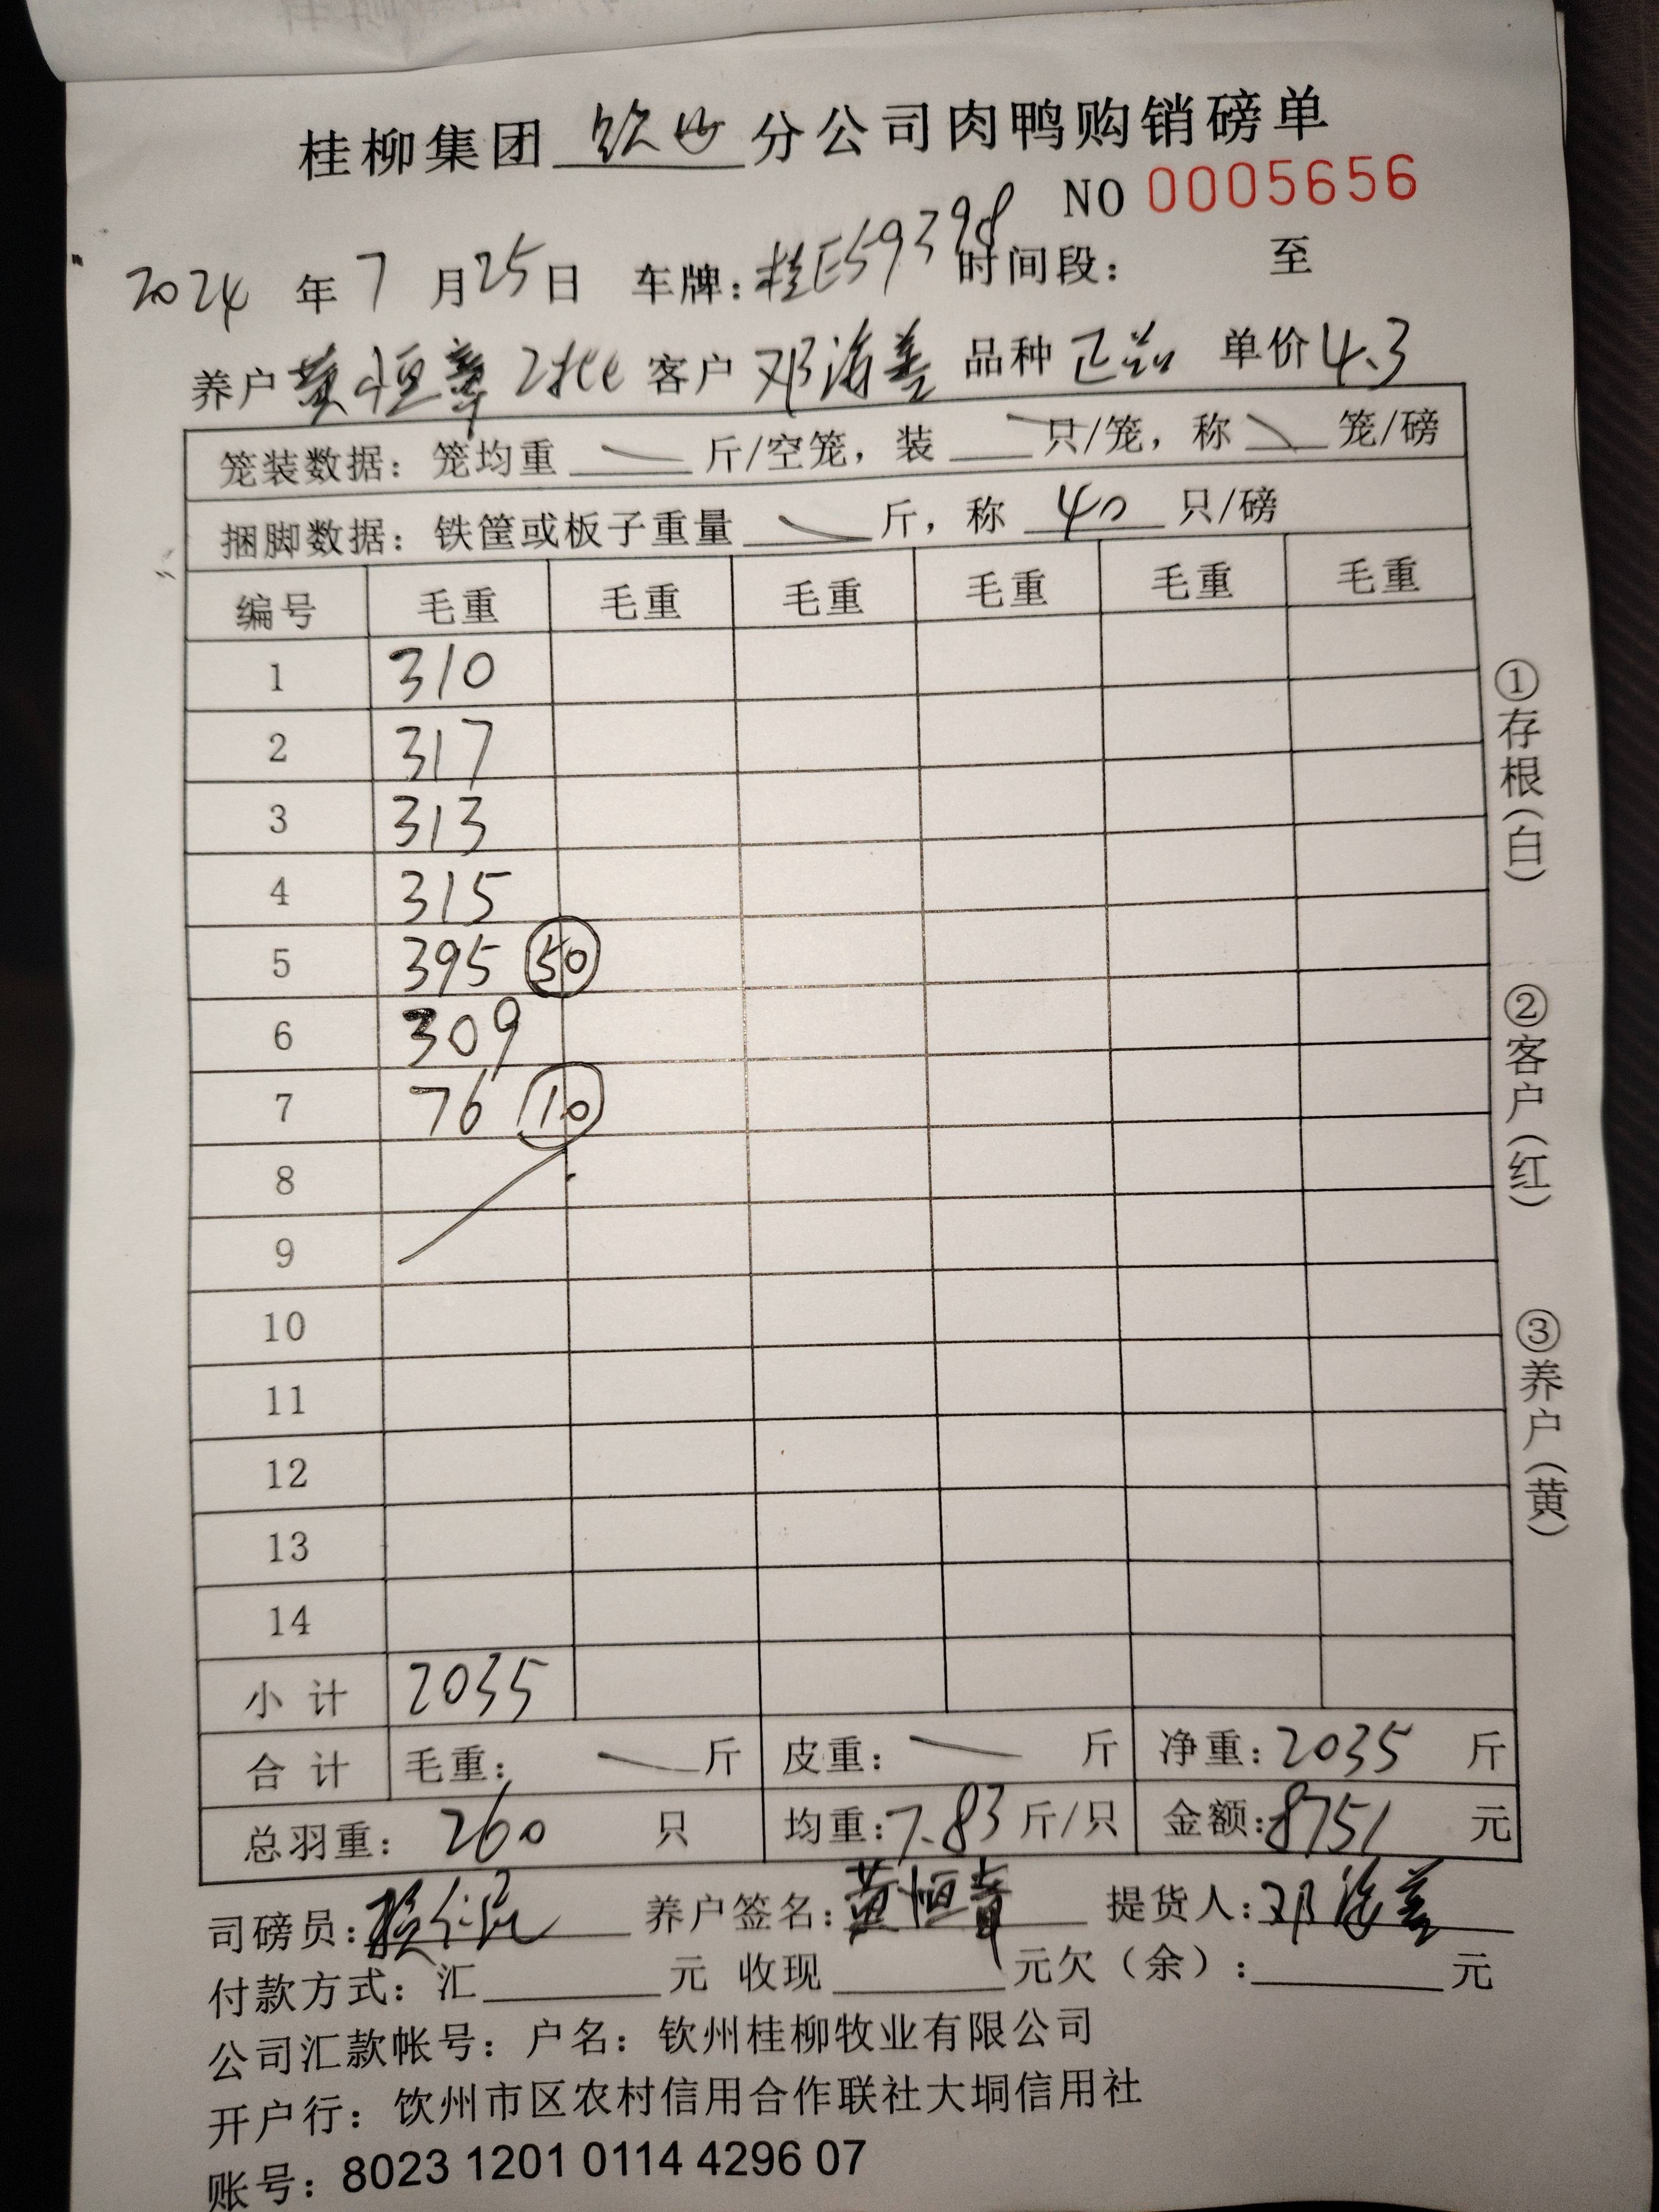 桂柳集团 钦州 分公司肉鸭购销磅单
NO 0005656
2024 年 7 月 25 日 车牌：桂E59398 时间段： 至
养户 黄恒章 2批 客户 邓海善 品种 正品 单价 4.3
笼装数据：笼均重 斤/空笼，装 只/笼，称 笼/磅
捆脚数据：铁筐或板子重量 斤，称 40 只/磅
编号 毛重 毛重 毛重 毛重 毛重 毛重
1 310
2 317
3 313
4 315
5 395 50
6 309
7 76 10
8
9
10
11
12
13
14
小计 2035
合计 毛重： 斤 皮重： 斤 净重：2035 斤
总羽重：260 只 均重：7.83 斤/只 金额：8751 元
司磅员： 养户签名：黄恒章 提货人：邓海善
付款方式：汇 元 收现 元欠（余）： 元
公司汇款帐号：户名：钦州桂柳牧业有限公司
开户行：饮州市区农村信用合作联社大垌信用社
账号：8023 1201 0114 4296 07
①存根（白）
②客户（红）
③养户（黄）